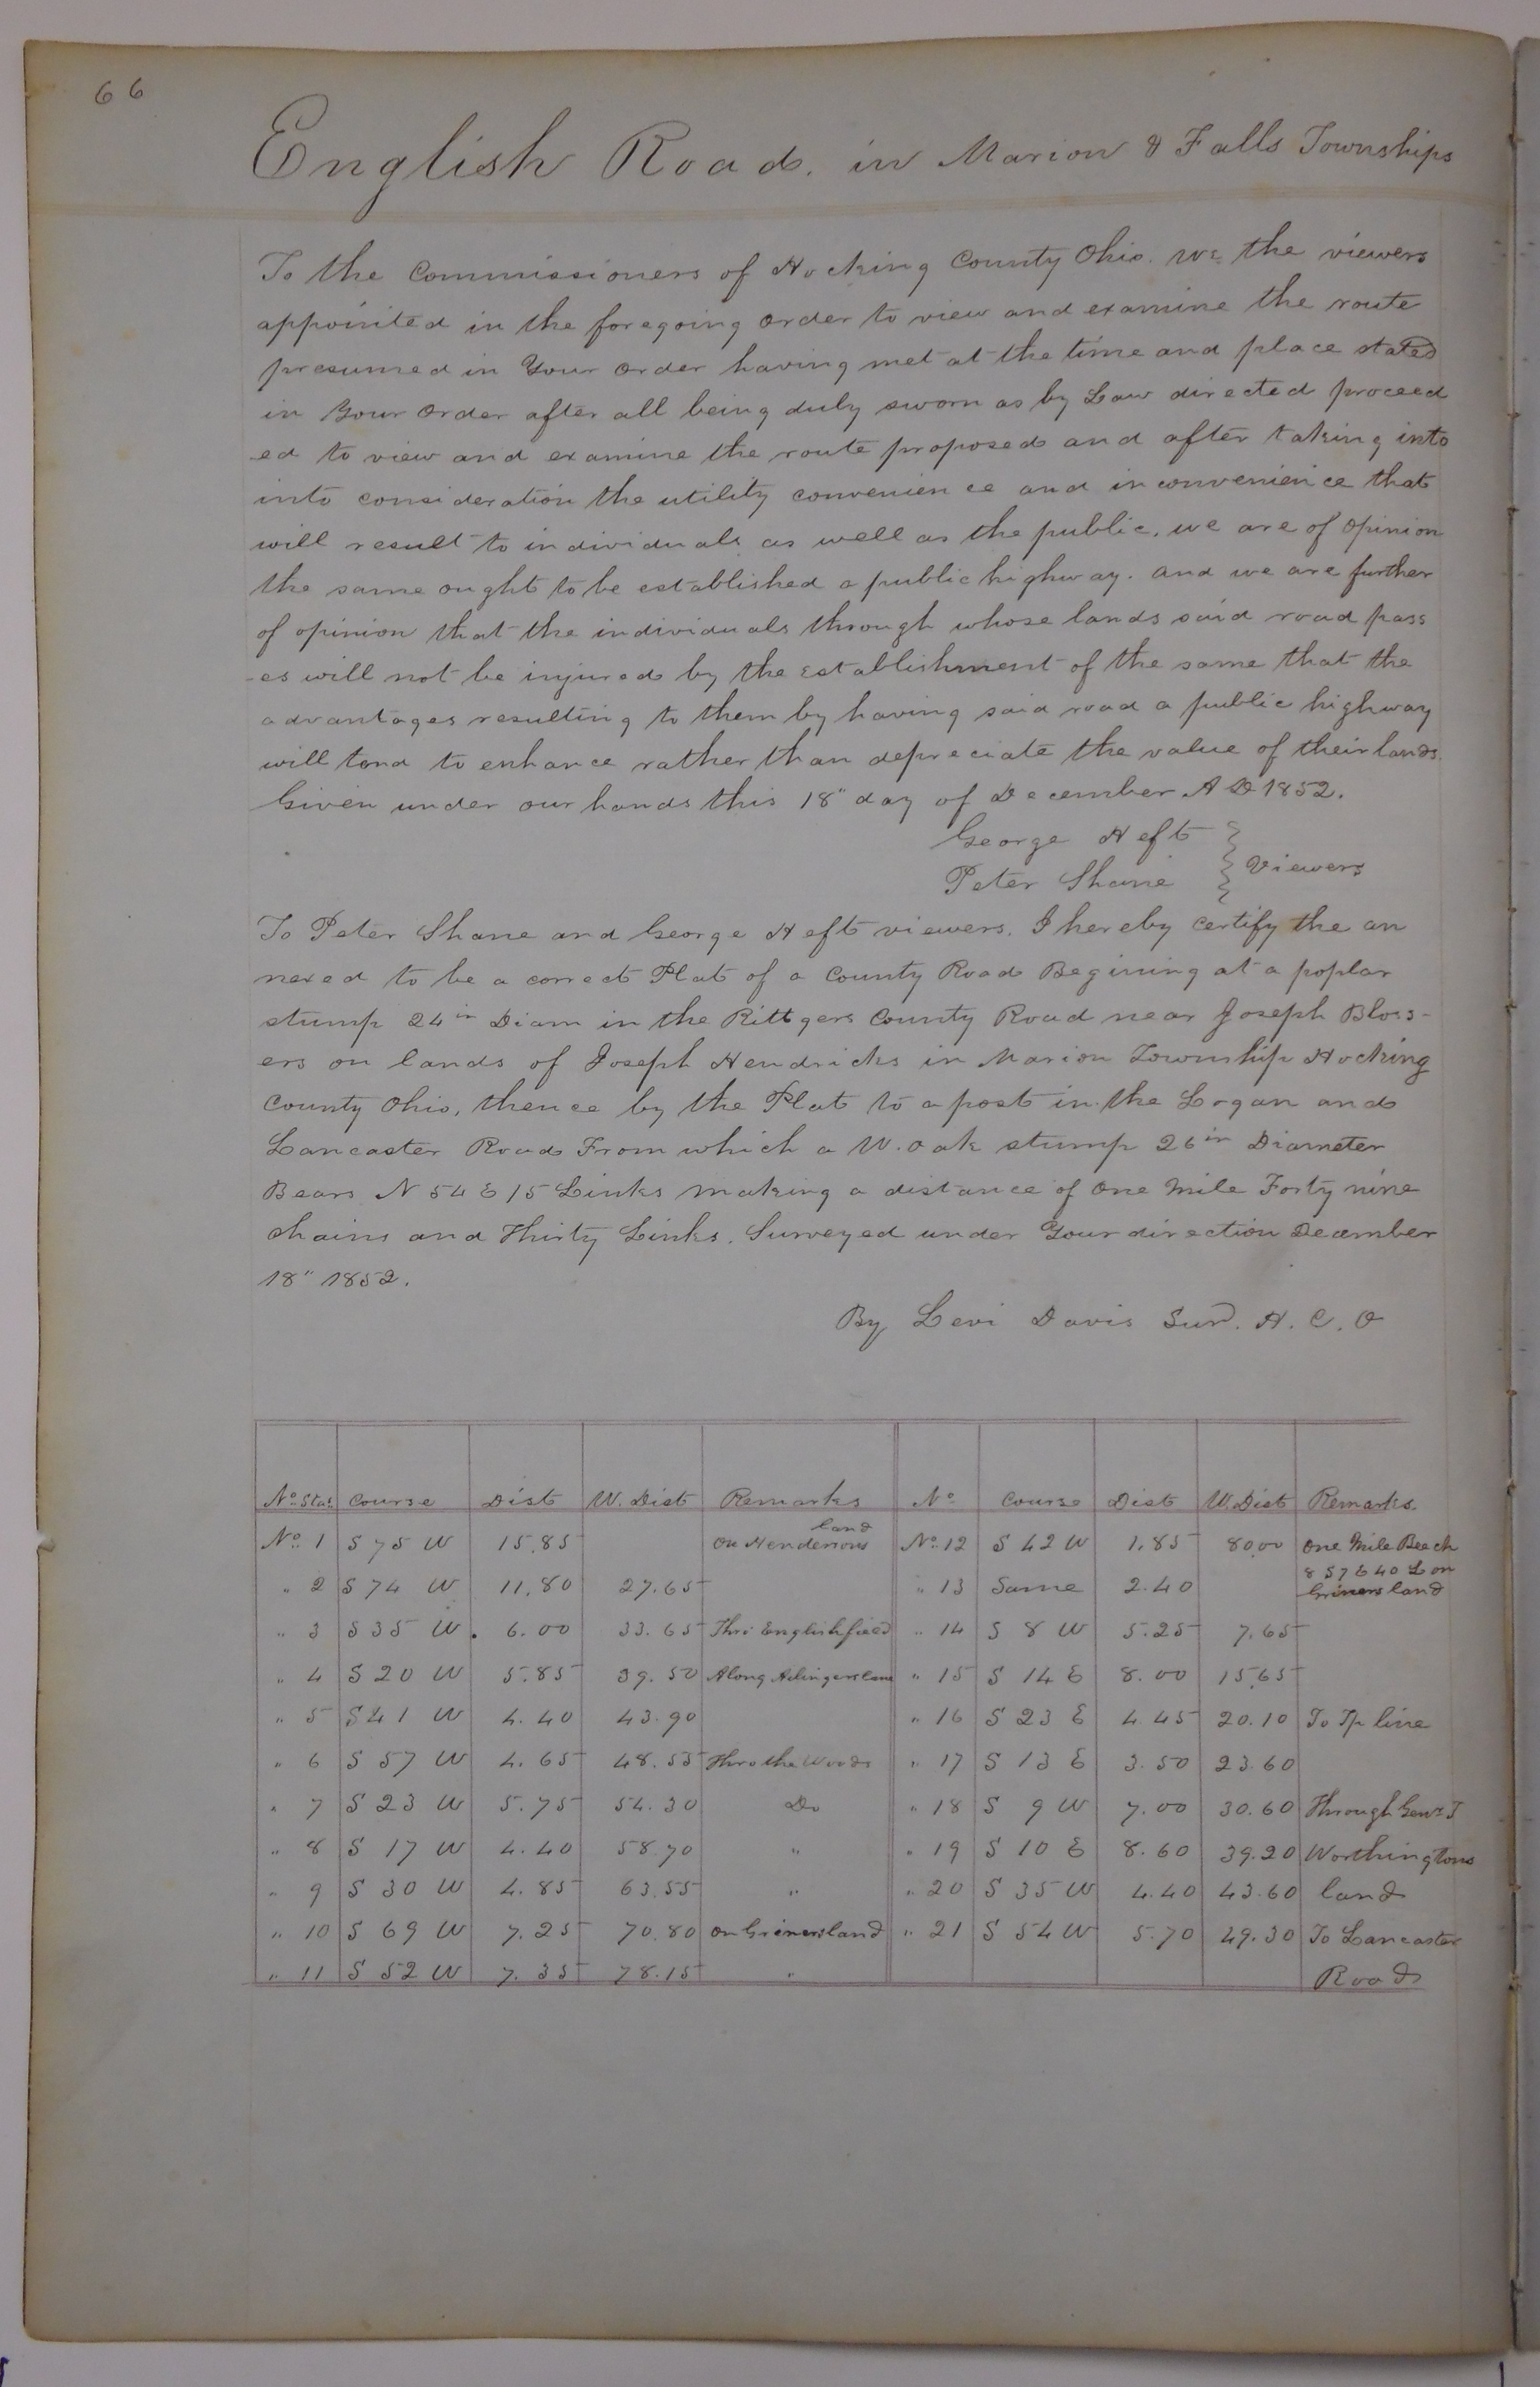 66
English Road. in Marion & Falls Townships
To the Commissioners of Hocking County Ohio. We the viewers
appointed in the foregoing order to view and examine the route
presumed in Your order having met at the time and place stated
in Your Order after all being duly sworn as by Law directed proceed
-ed to view and examine the route proposed and after taking into
into consideration the utility convenience and inconvenience that
will result to individuals as well as the public. we are of opinion
the same ought to be established a public highway. and we are further
of opinion that the individuals through whose lands said road pass
-es will not be injured by the establishment of the same that the
advantages resulting to them by having said road a public highway
will tend to enhance rather than depreciate the value of their lands.
Given under our hands this 18" day of December A D 1852.
George Heft
Peter Shane } Viewers
To Peter Shane and George Heft viewers. I hereby certify the an
nexed to be a correct Plat of a County Road Begining at a poplar
stump 24 in Diam in the Rittgers County Road near Joseph Bloss-
ers on lands of Joseph Hendricks in Marion Township Hocking
County Ohio, thence by the Plat to a post in the Logan and
Lancaster Road From which a W. oak stump 26 in Diameter
Bears N 54 E 15 Links making a distance of One Mile Forty nine
chains and Thirty Links. Surveyed under Your direction December
18" 1852.
By Levi Davis Surv. H. C. O
No. Sta. Course Dist W. Dist Remarks No Course Dist W. Dist Remarks.
No. 1 S 75 W 15.85 On Hendersons land No. 12 S 42 W 1.85 80.00 One Mile Beech
" 2 S 74 W 11.80 27.65 " 13 Same 2.40 8 S 7 E 40 L on Griners land
" 3 S 35 W. 6.00 33.65 Thro English field " 14 S 8 W 5.25 7.65
" 4 S 20 W 5.85 39.50 Along " 15 S 14 E 8.00 15.65
" 5 S 41 W 4.40 43.90 " 16 S 23 E 4.45 20.10 To Tp line
" 6 S 57 W 4.65 48.55 Thro the Woods " 17 S 13 E 3.50 23.60
" 7 S 23 W 5.75 54.30 Do " 18 S 9 W 7.00 30.60 Through Genr. T
" 8 S 17 W 4.40 58.70 " " 19 S 10 E 8.60 39.20 Worthingtons
" 9 S 30 W 4.85 63.55 " " 20 S 35 W 4.40 43.60 land
" 10 S 69 W 7.25 70.80 on Griners land " 21 S 54 W 5.70 49.30 To Lancaster
" 11 S 52 W 7.35 78.15 " Road